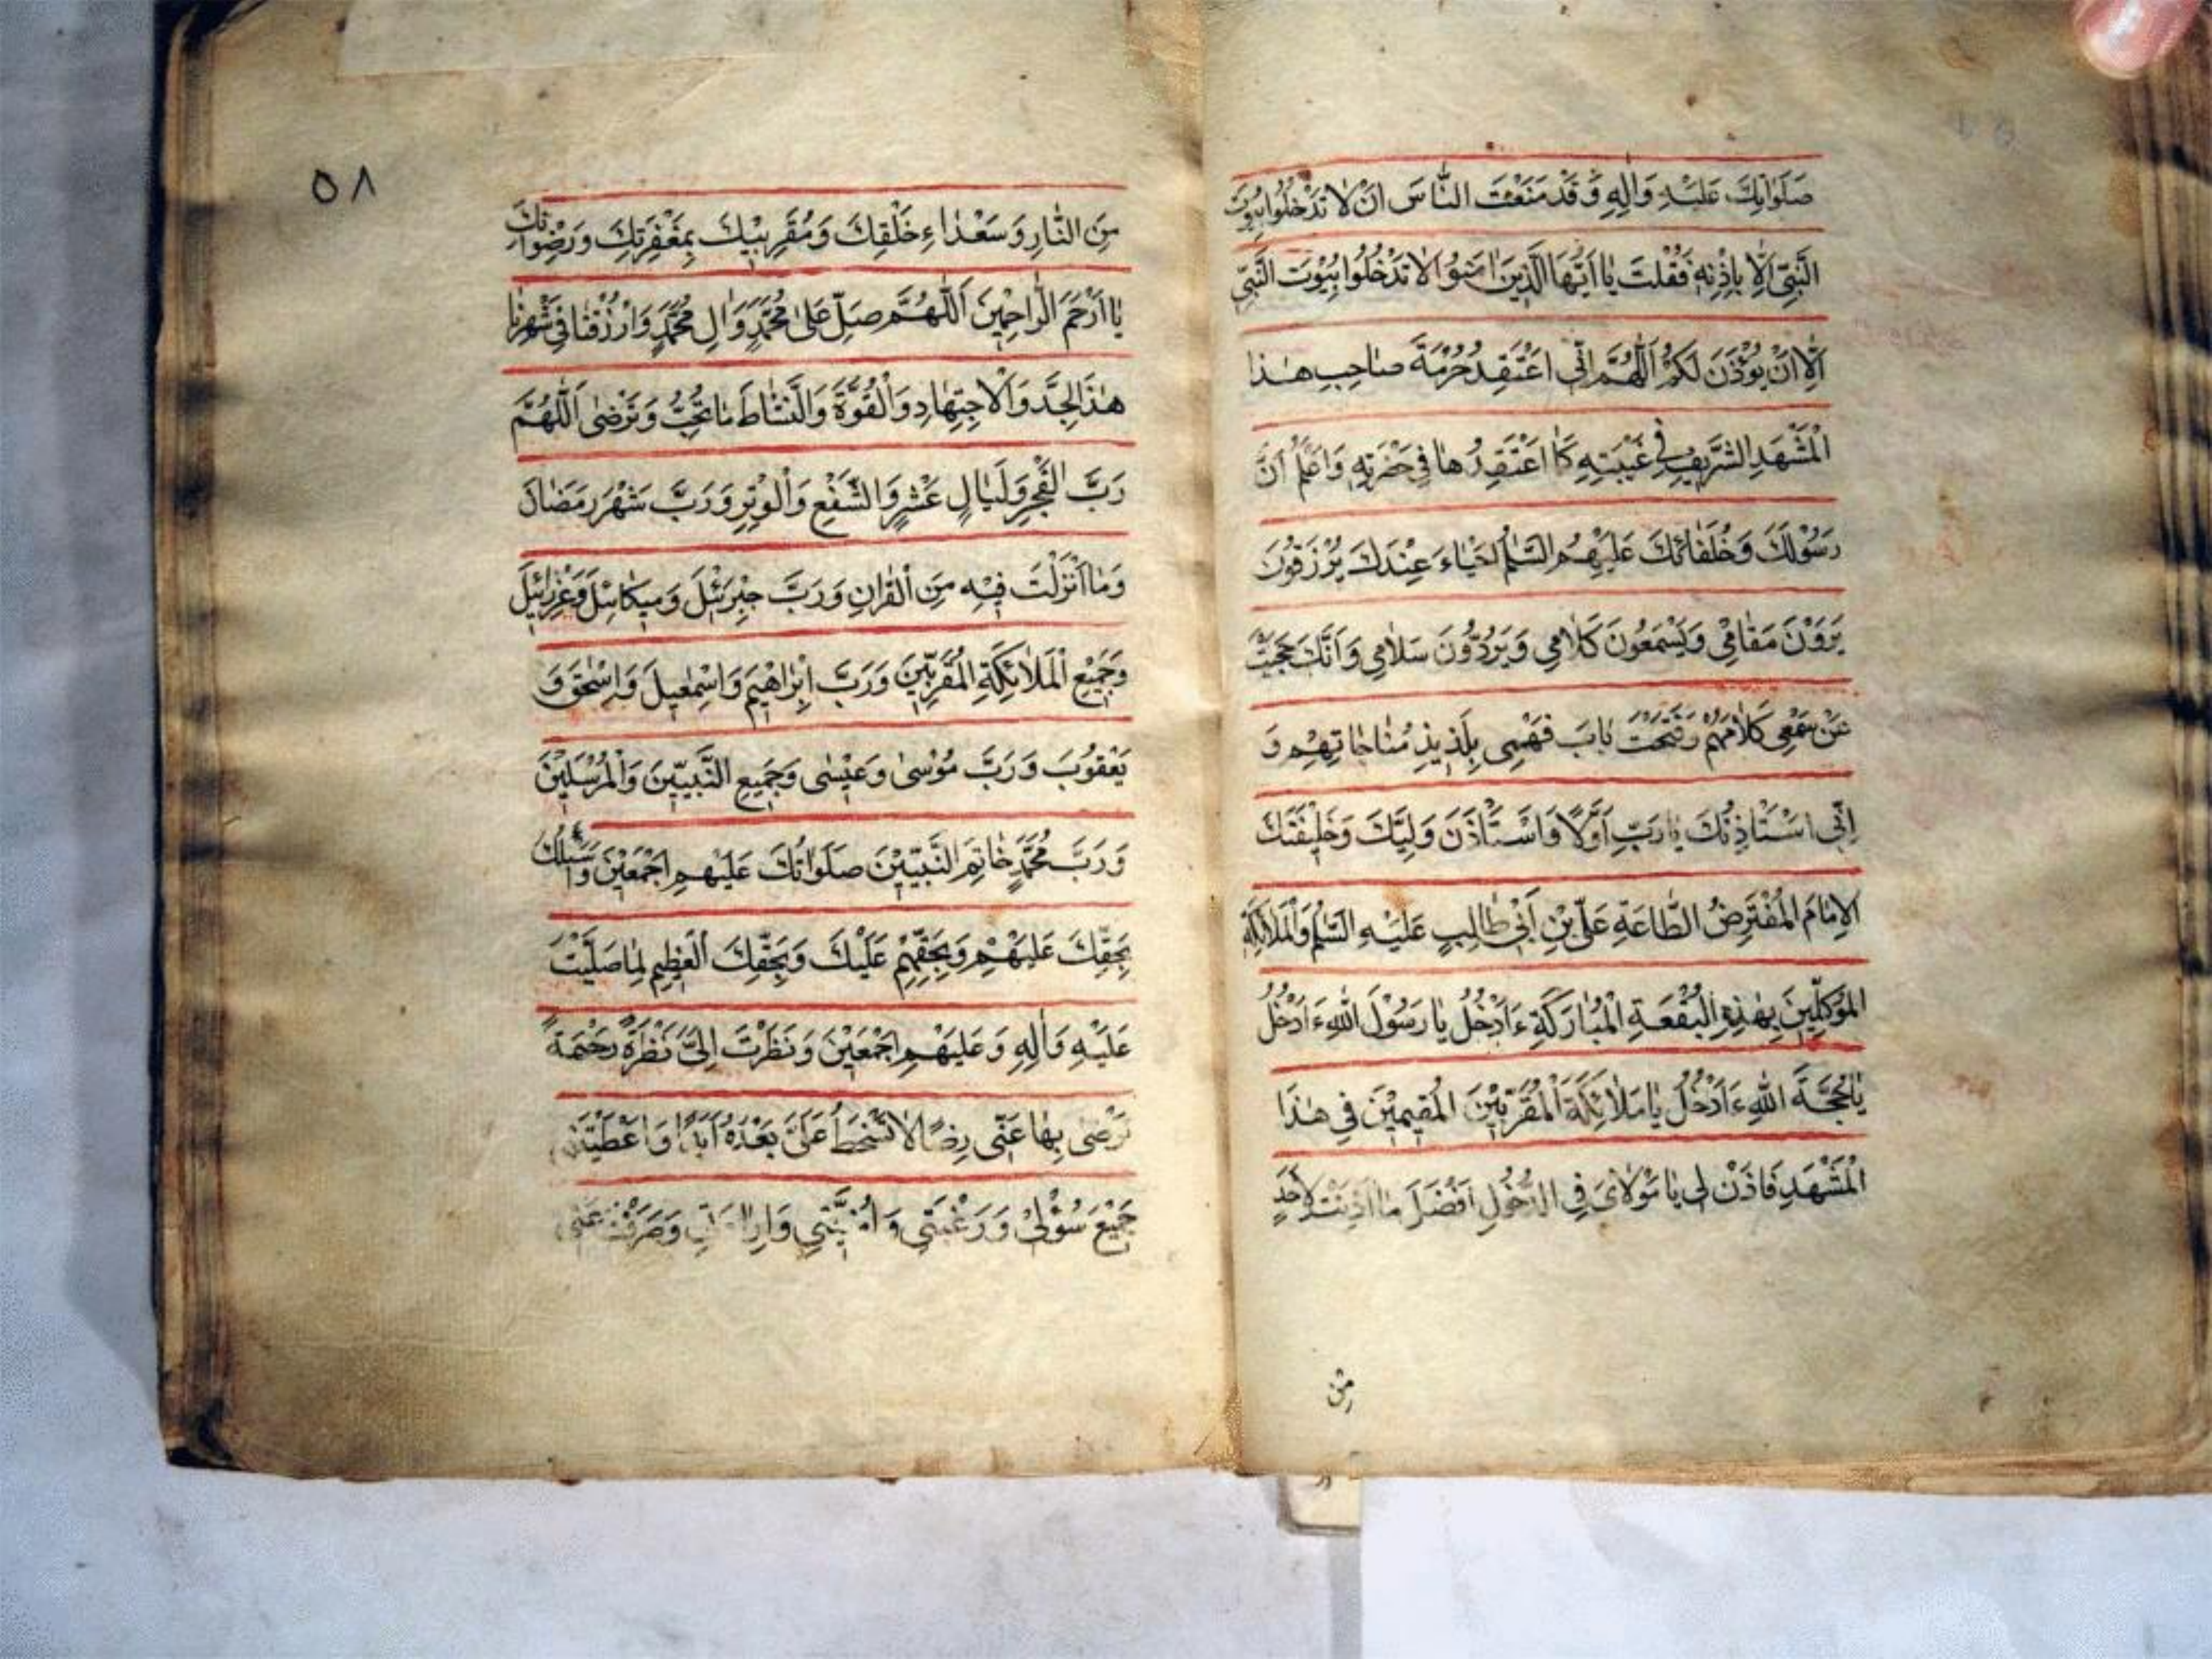 صَلَوَاتُكَ عَلَيْهِ وَالِهِ وَقَدْ مَنَعْتَ النَّاسَ اَنْ لَا تَدْخُلُوا بُيُوتَ
النَّبِيِّ اِلَّا بِاِذْنِهِ فَقُلْتَ يَا اَيُّهَا الَّذِينَ امَنُوا لَا تَدْخُلُوا بُيُوْتَ النَّبِيِّ
اِلَّا اَنْ يُؤْذَنَ لَكُمْ اَللّٰهُمَّ اِنّي اَعْتَقِدُ حُرْمَةَ صَاحِبِ هٰذَا
الْمَشْهَدِ الشَّرِيفِ فِي غَيْبَتِهِ كَمَا اَعْتَقِدُهَا فِي حَضْرَتِهِ وَاَعْلَمُ اَنَّ
رَسُوْلَكَ وَخُلَفَائَكَ عَلَيْهِمُ السَّلٰمُ اَحْيَاءَ عِنْدَكَ يُرْزَقُوْنَ
يَرَوْنَ مَقَامِيْ وَيَسْمَعُونَ كَلَامِي وَيَرُدُّونَ سَلَامِي وَاَنَّكَ حَجَبْتَ
عَنْ سَمْعِي كَلَامَهُمْ وَفَتَحْتَ بَابَ فَهْمِي بِلَذِيذِ مُنَاجَاتِهِمْ وَ
اِنّي اَسْتَاذِنُكَ يَا رَبِّ اَوَّلًا وَاَسْتَاْذَنَ وَلِيَّكَ وَخَلِيفَتَكَ
الْاِمَامَ الْمُفْتَرِضُ الطَّاعَةِ عَلِيِّ بْنِ اَبِي طَالِبٍ عَلَيْهِ السَّلٰمُ وَالْمَلَائِكَةِ
الْمُوَكَّلِينَ بِهٰذِهِ الْبُقْعَةِ الْمُبَارَكَةِ ءَاَدْخُلُ يَا رَسُوْلَ اللّٰهِ ءَاَدْخُلُ
يَا حُجَّةَ اللّٰهِ ءَاَدْخُلُ يَا مَلَائِكَةَ الْمُقَرَّبِيْنَ الْمُقِيمِيْنَ فِي هٰذَا
الْمَشْهَدِ فَاذَنْ لِي يَا مَوْلَايَ فِي الدُّخُولِ اَفْضَلَ مَا اَذِنْتَ لِاَحَدٍ
مِنْ
٥٨
مِنَ النَّارِ وَسَعْدَاءِ خَلْقِكَ وَمُقَرَّبِيْكَ بِمَغْفِرَتِكَ وَرِضْوَانِكَ
يَا اَرْحَمَ الرَّاحِمِيْنَ اَللّٰهُمَّ صَلِّ عَلٰى مُحَمَّدٍ وَاٰلِ مُحَمَّدٍ وَارْزُقْنَا فِي شَهْرِنَا
هٰذَ الْجِدَّ وَالْاِجْتِهَادِ وَالْقُوَّةَ وَالنَّشَاطَ مَا تُحِبُّ وَتَرْضٰى اَللّٰهُمَّ
رَبَّ الْفَجْرِ وَلَيَالٍ عَشْرٍ وَالشَّفْعِ وَالْوَتْرِ وَرَبَّ شَهْرِ رَمَضَانَ
وَمَا اَنْزَلْتَ فِيْهِ مِنَ الْقُرْانِ وَرَبَّ جِبْرَئِيْلَ وَمِيكَائِيلَ وَعِزْرَائِيلَ
وَجَمِيْعِ الْمَلَائِكَةِ الْمُقَرَّبِيْنَ وَرَبَّ اِبْرَاهِيْمَ وَاِسْمٰعِيلَ وَاِسْحٰقَ وَ
يَعْقُوْبَ وَرَبَّ مُوْسٰى وَعِيْسٰى وَجَمِيعِ النَّبِيّيْنَ وَالْمُرْسَلِيْنَ
وَرَبَّ مُحَمَّدٍ خَاتِمِ النَّبِيّيْنَ صَلَوَاتُكَ عَلَيْهِمْ اَجْمَعِيْنَ وَاَسْئَلُكَ
بِحَقِّكَ عَلَيْهِمْ وَبِحَقِّهِمْ عَلَيْكَ وَبِحَقِّكَ الْعَظِيمِ لَمَا صَلَّيْتَ
عَلَيْهِ وَاٰلِهِ وَعَلَيْهِمْ اَجْمَعِيْنَ وَنَظَرْتَ اِلَيَّ نَظْرَةً رَحْمَةً
تَرْضٰى بِهَا عَنّي رِضًا لَا تَسْخَطُ عَلَيَّ بَعْدَهُ اَبَدًا وَاَعْطَيْتَنِي
جَمِيْعَ سُؤْلِيْ وَرَغْبَتِي وَاُمْنِيَّتِي وَاِرَادَتِي وَصَرَفْتَ عَنِّي